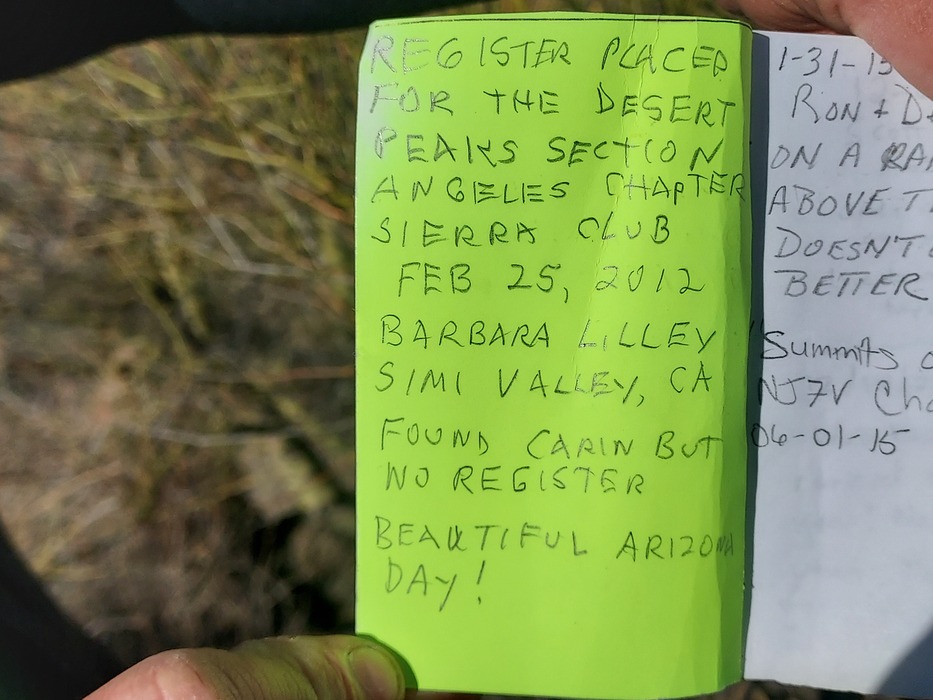 REGISTER PLACED
FOR THE DESERT
PEAKS SECTION
ANGELES CHAPTER
SIERRA CLUB
FEB 25, 2012
BARBARA LILLEY
SIMI VALLEY, CA
FOUND CARIN BUT
NO REGISTER
BEAUTIFUL ARIZONA
DAY!
1-31-15
RON +
ON A
ABOVE
DOESN'T
BETTER
"Summits
NJ7V
06-01-15